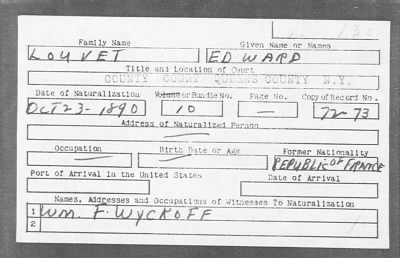 Family Name Given Name or Names
LOUVET EDWARD
Title and Location of Court
COUNTY COURT QUEENS COUNTY N.Y.
Date of Naturalization Volume or Bundle No. Page No. Copy of Record No.
OCT 23-1890 10 — 72-73
Address of Naturalized Person
—
Occupation Birth Date or Age Former Nationality
— — REPUBLIC OF FRANCE
Port of Arrival in the United States Date of Arrival
Names, Addresses and Occupations of Witnesses To Naturalization
1 WM. F. WYCKOFF
2